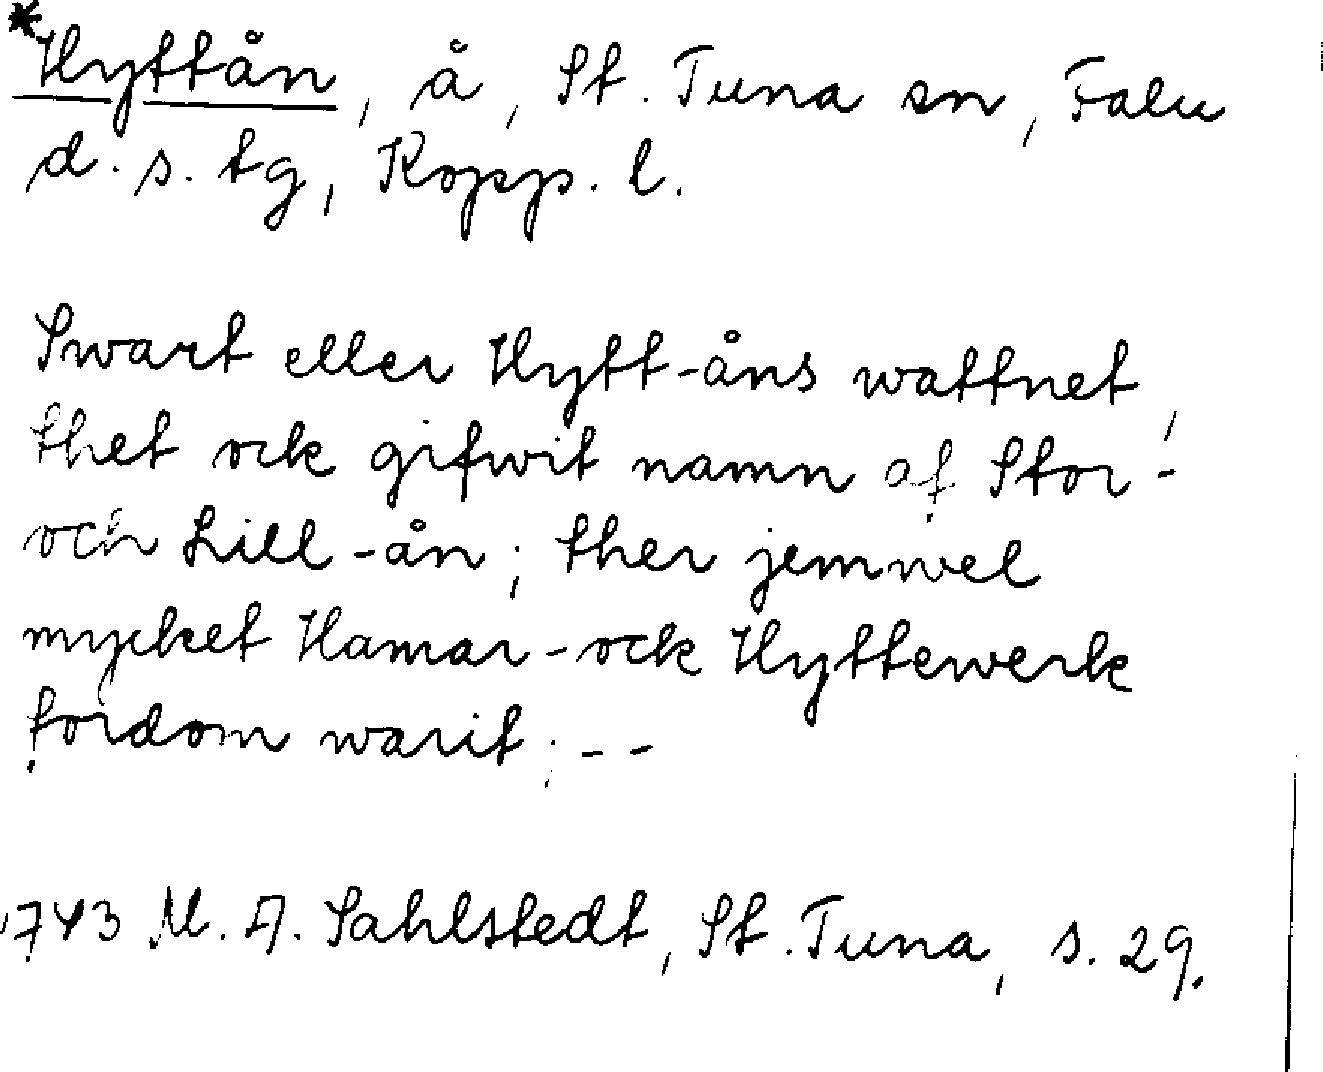 *Hyttån, å, St. Tuna sn, Falu
d. s. tg, Kopp. l.
Swart eller Hytt-åns wattnet,
thet ock gifwit namn af Stor-
och Lill-ån; ther jemwel
mycket Hamar-ock Hyttewerk
fordom warit; --
1743 M. A. Sahlstedt, St. Tuna, s. 29.